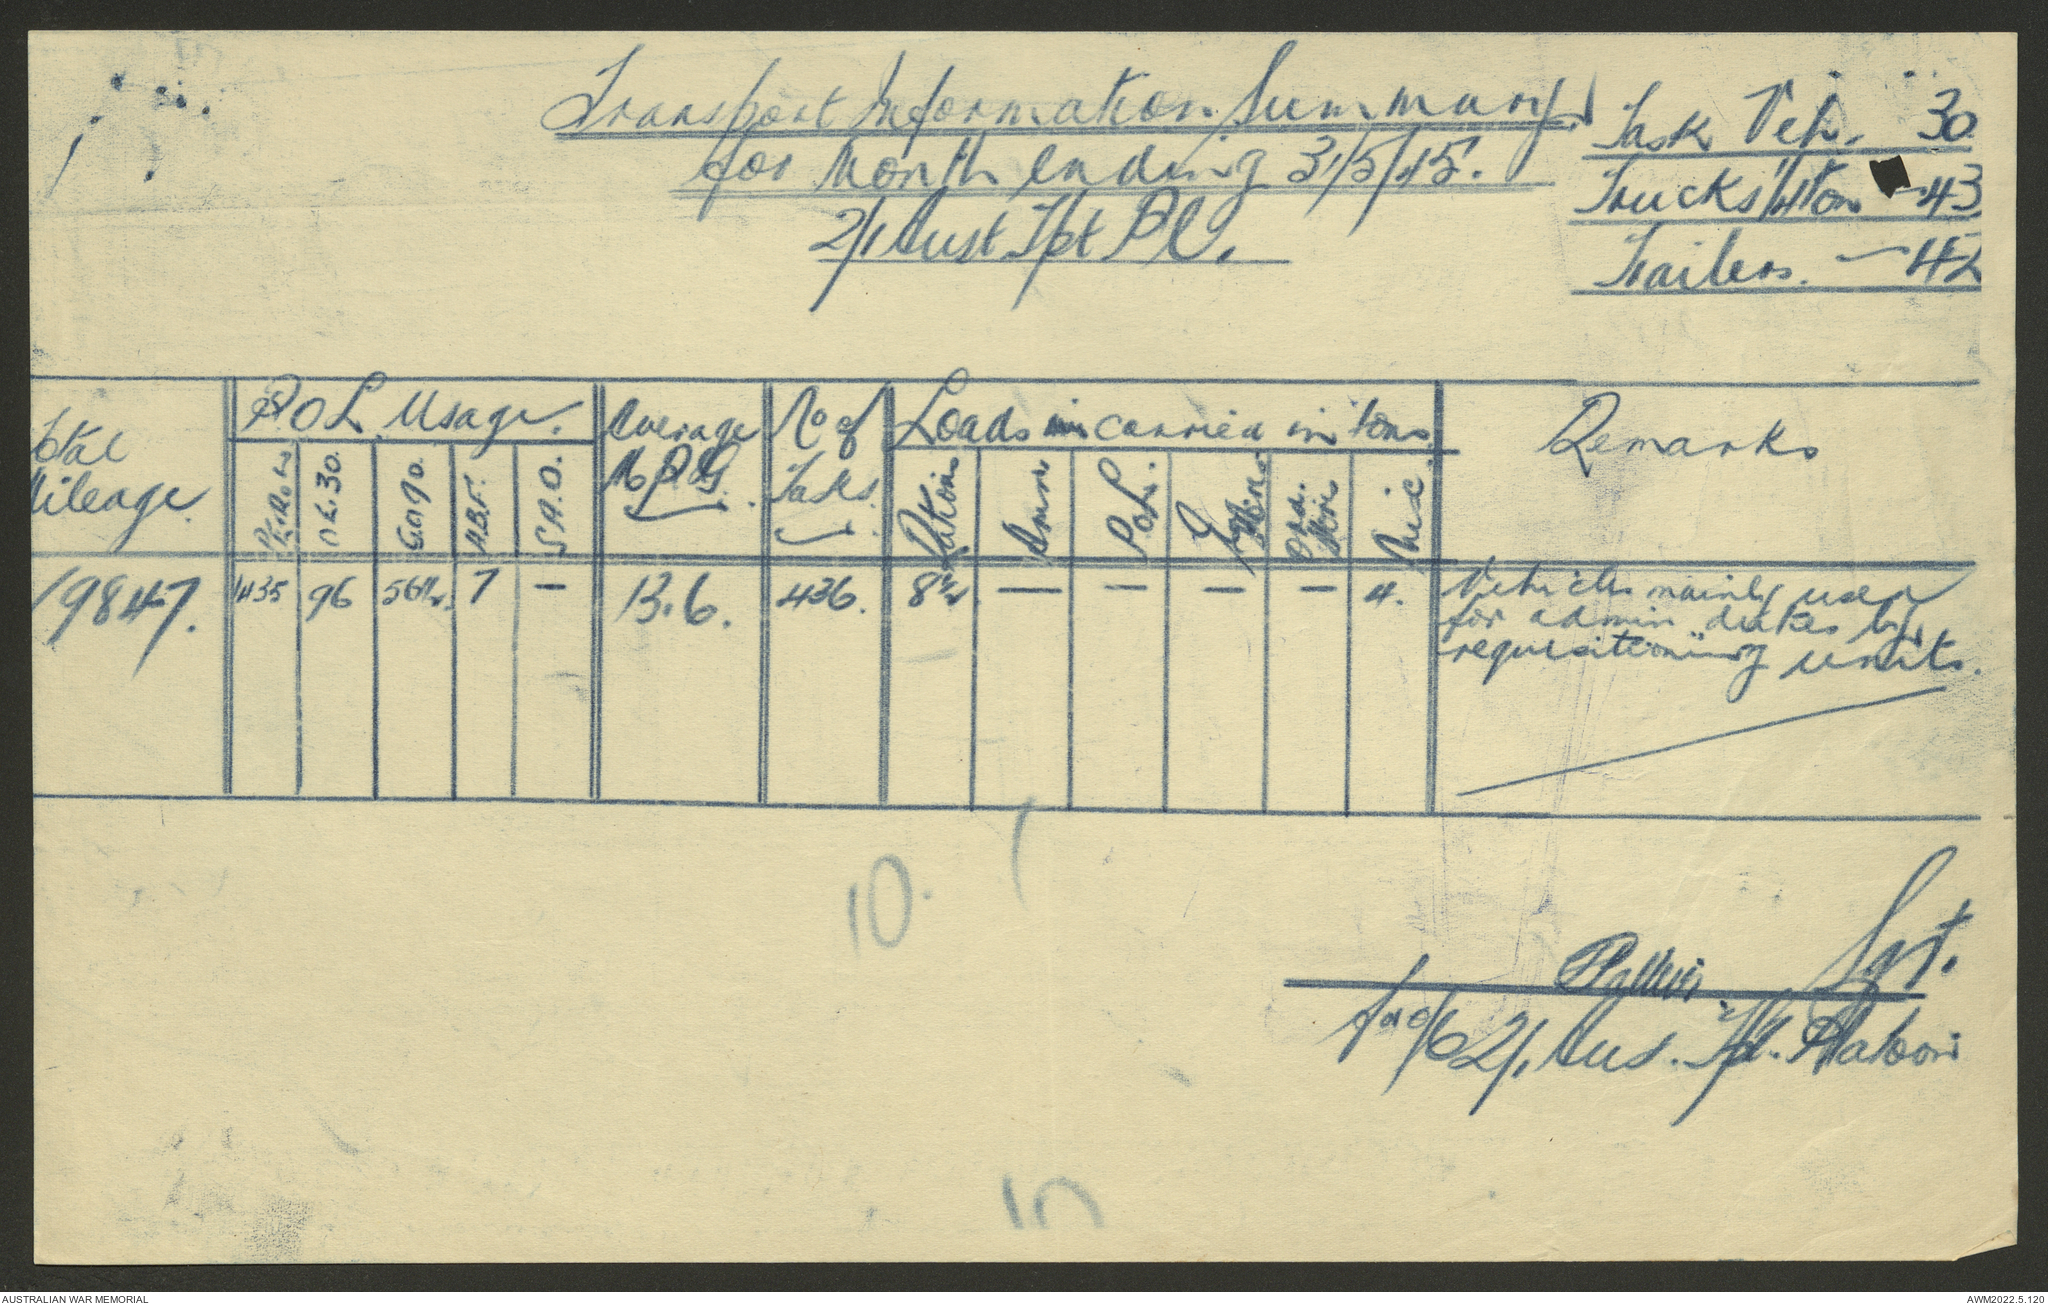 Transport Information Summary
for Month ending 31/5/45.
2/1 Aust Tpt Pl.
Task Veh. 30
Trucks 1/4 ton - 43
Trailers. - 42
otal
ileage.
POL Usage.
Petrol
OE.30.
G.O.90.
H.B.F.
S.A.O.
Average
M.P.G.
No of
Tasks
Loads carried in tons.
Rations
Amm
P.O.L.
Eng Stores
Ord. Stores
Misc
Remarks
19847.
1435
96
56½
7
—
13.6.
436.
8½
—
—
—
—
4.
Vehicles mainly used
for admin duties by
requisitioning units.
10.
Sgt.
for O/C 2/1 Aus. Tpt. Platoon
10
AUSTRALIAN WAR MEMORIAL
AWM2022.5.120